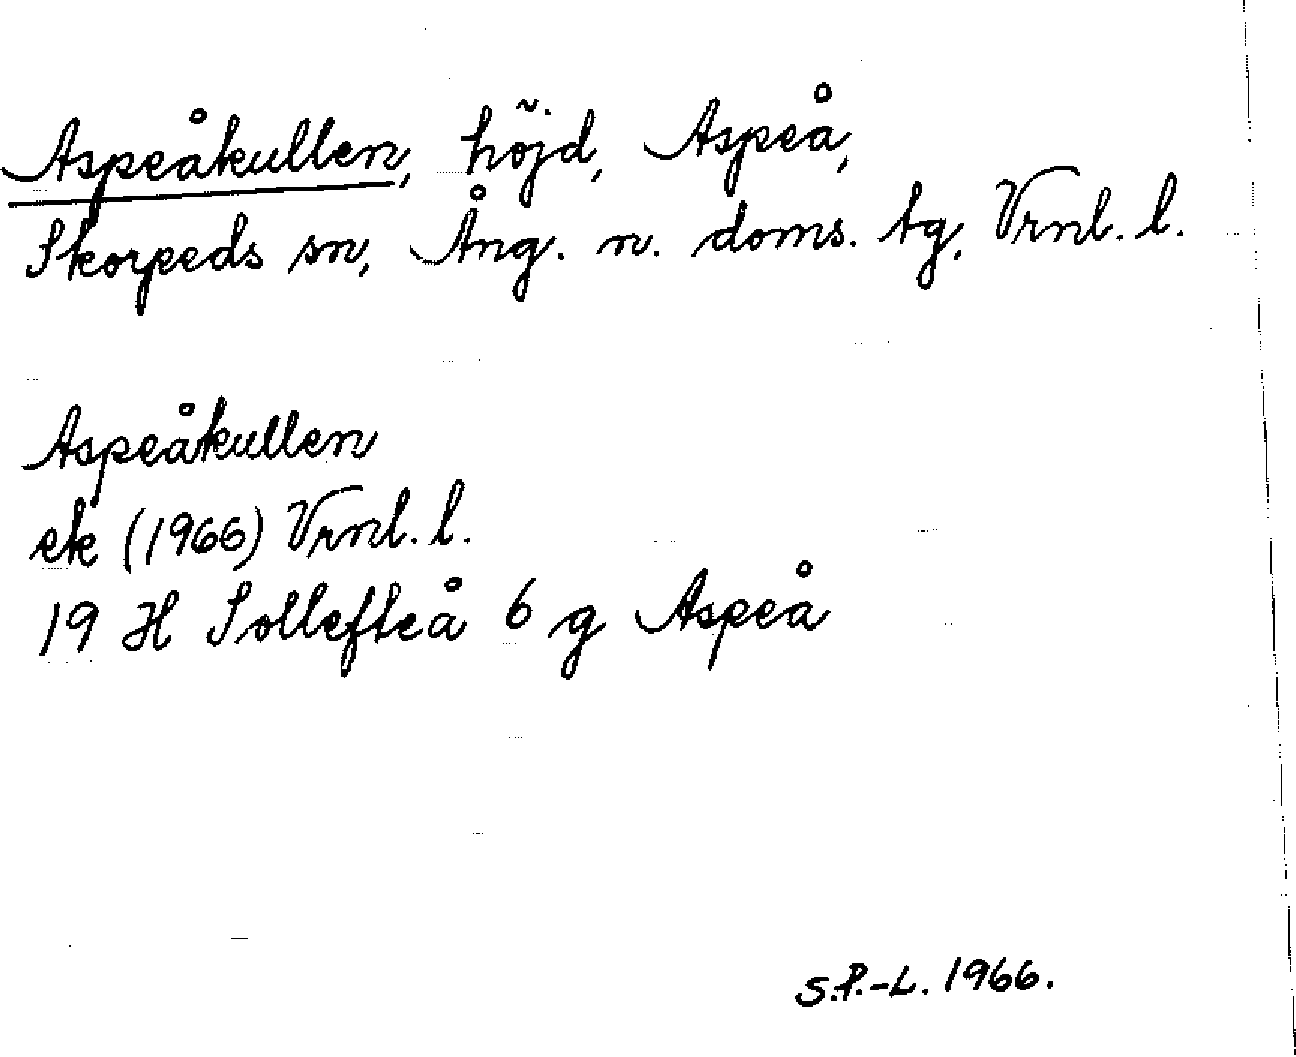 Aspeåkullen, höjd, Aspeå,
Skorpeds sn, Ång. n. doms. tg, Vrnl. l.
Aspeåkullen
ek (1966) Vrnl. l.
19 H Sollefteå 6 g Aspeå
S.P.-L. 1966.